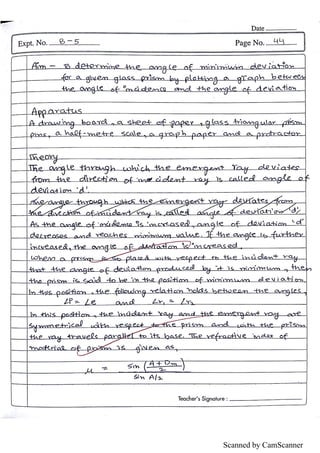 Date
Expt. No. B-5 Page No. 44
Aim - To determine the angle of minimum deviation
for a given glass prism by plotting a graph between
the angle of incidence and the angle of deviation
Apparatus
A drawing board, a sheet of paper, glass triangular prism
pins, a half-metre scale, a graph paper and a protractor
Theory
The angle through which the emergent ray deviates
from the direction of incident ray is called angle of
deviation 'd'.
The angle through which the emergent ray deviates from
the direction of incident ray is called angle of deviation 'd'
As the angle of incidence is increased, angle of deviation 'd'
decreases and reaches minimum value. If the angle is further
increased, the angle of deviation is increased.
When a prism is so placed with respect to the incident ray
that the angle of deviation produced by it is minimum, then
the prism is said to be in the position of minimum deviation.
In this position, the following relation holds between the angles,
∠i = ∠e and ∠r₁ = ∠r₂
In this position, the incident ray and the emergent ray are
symmetrical with respect to the prism and the prism
the ray travels parallel to its base. The refractive index of
material of prism is given as,
μ = Sin (A + Dm / 2)
Sin A/2
Teacher's Signature :
Scanned by CamScanner